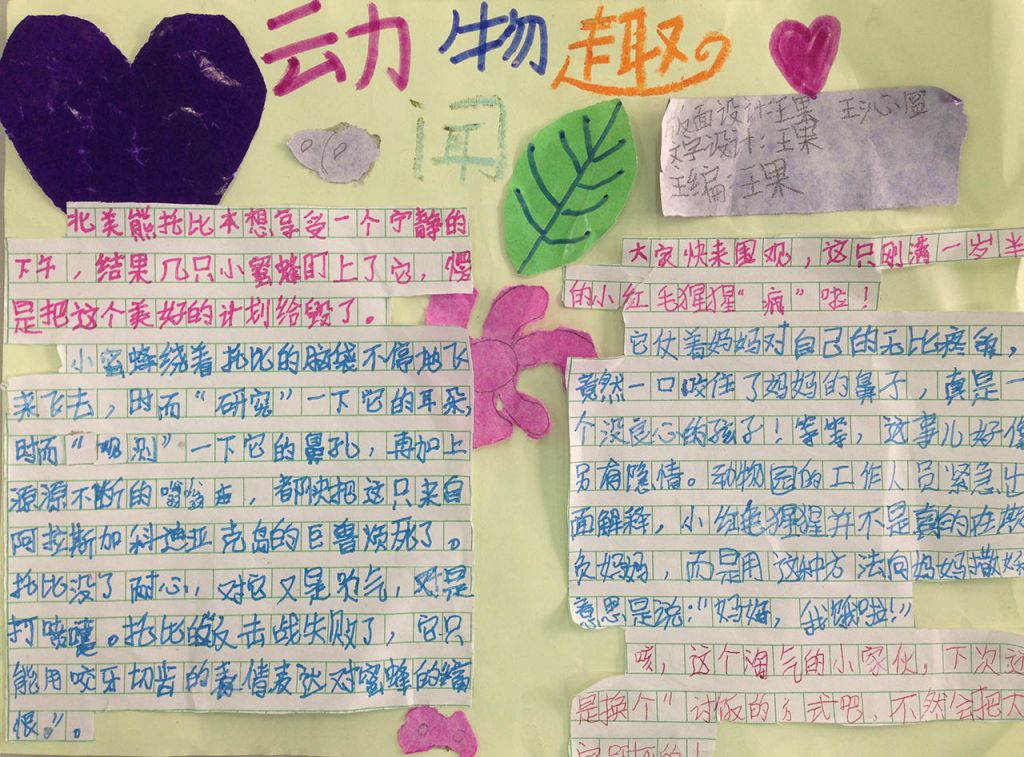 动物趣
闻
版面设计:王果 王沁
文字设计:王果
主编:王果
北美熊托比本想享受一个宁静的
下午,结果几只小蜜蜂盯上了它,愣
是把这个美好的计划给毁了。
小蜜蜂绕着托比的脑袋不停地飞
来飞去,时而“研究”一下它的耳朵,
时而“观测”一下它的鼻孔,再加上
源源不断的嗡嗡声,都快把这只来自
阿拉斯加科迪亚克岛的巨兽烦死了。
托比没了耐心,对它又是吹气,又是
打喷嚏。托比的反击战失败了,它只
能用咬牙切齿的表情表达对蜜蜂的痛
恨。”。
大家快来围观,这只刚满一岁半
的小红毛猩猩“疯”啦!
它仗着妈妈对自己的无比疼爱,
竟然一口咬住了妈妈的鼻子,真是一
个没良心的孩子!等等,这事儿好像
另有隐情。动物园的工作人员紧急出
面解释,小红毛猩猩并不是真的在欺
负妈妈,而是用这种方法向妈妈撒娇
意思是说:“妈妈,我饿啦!”
咳,这个淘气的小家伙,下次还
是换个”讨饭的方式吧,不然会把大
家吓坏的!